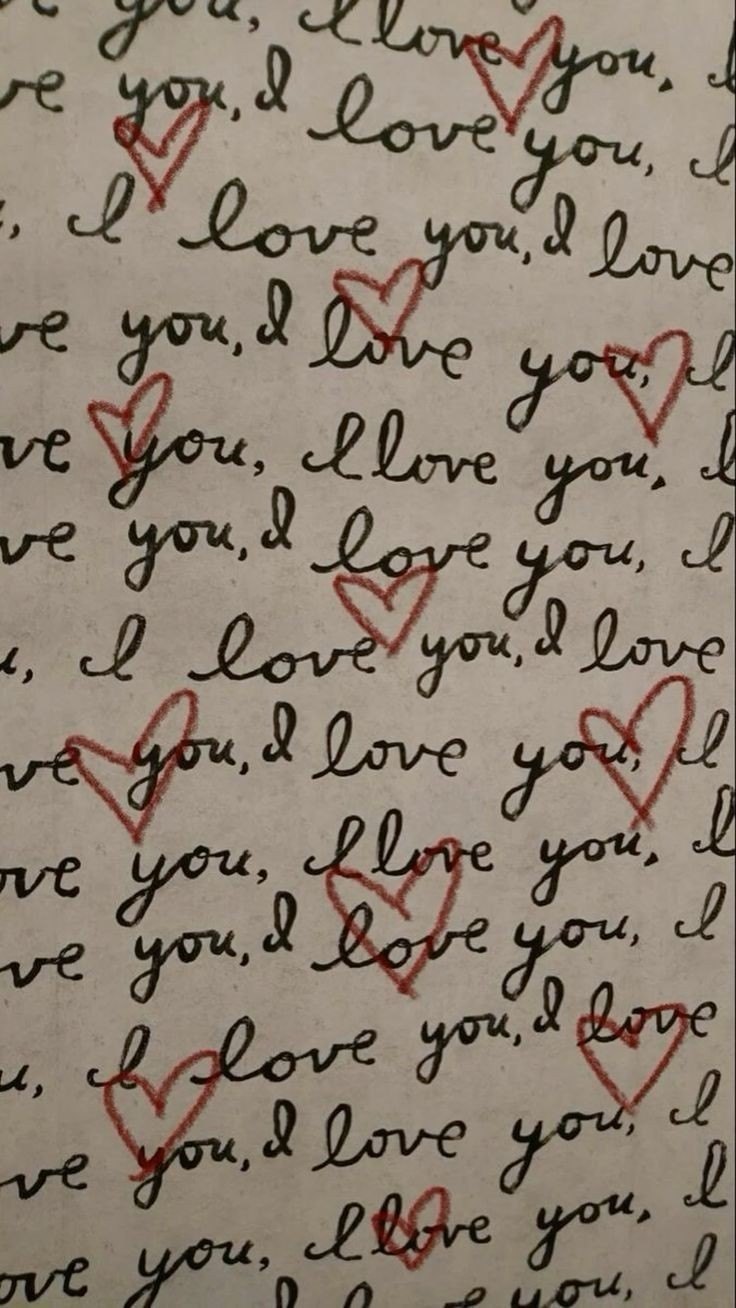 you, I love you, I
ve you, I love you, I
, I love you, I love
ve you, I love you, I
ve you, I love you, I
ve you, I love you, I
u, I love you, I love
ve you, I love you, I
ove you, I love you, I
ve you, I love you, I
u, I love you, I love
ve you, I love you, I
ove you, I love you, I
you, I